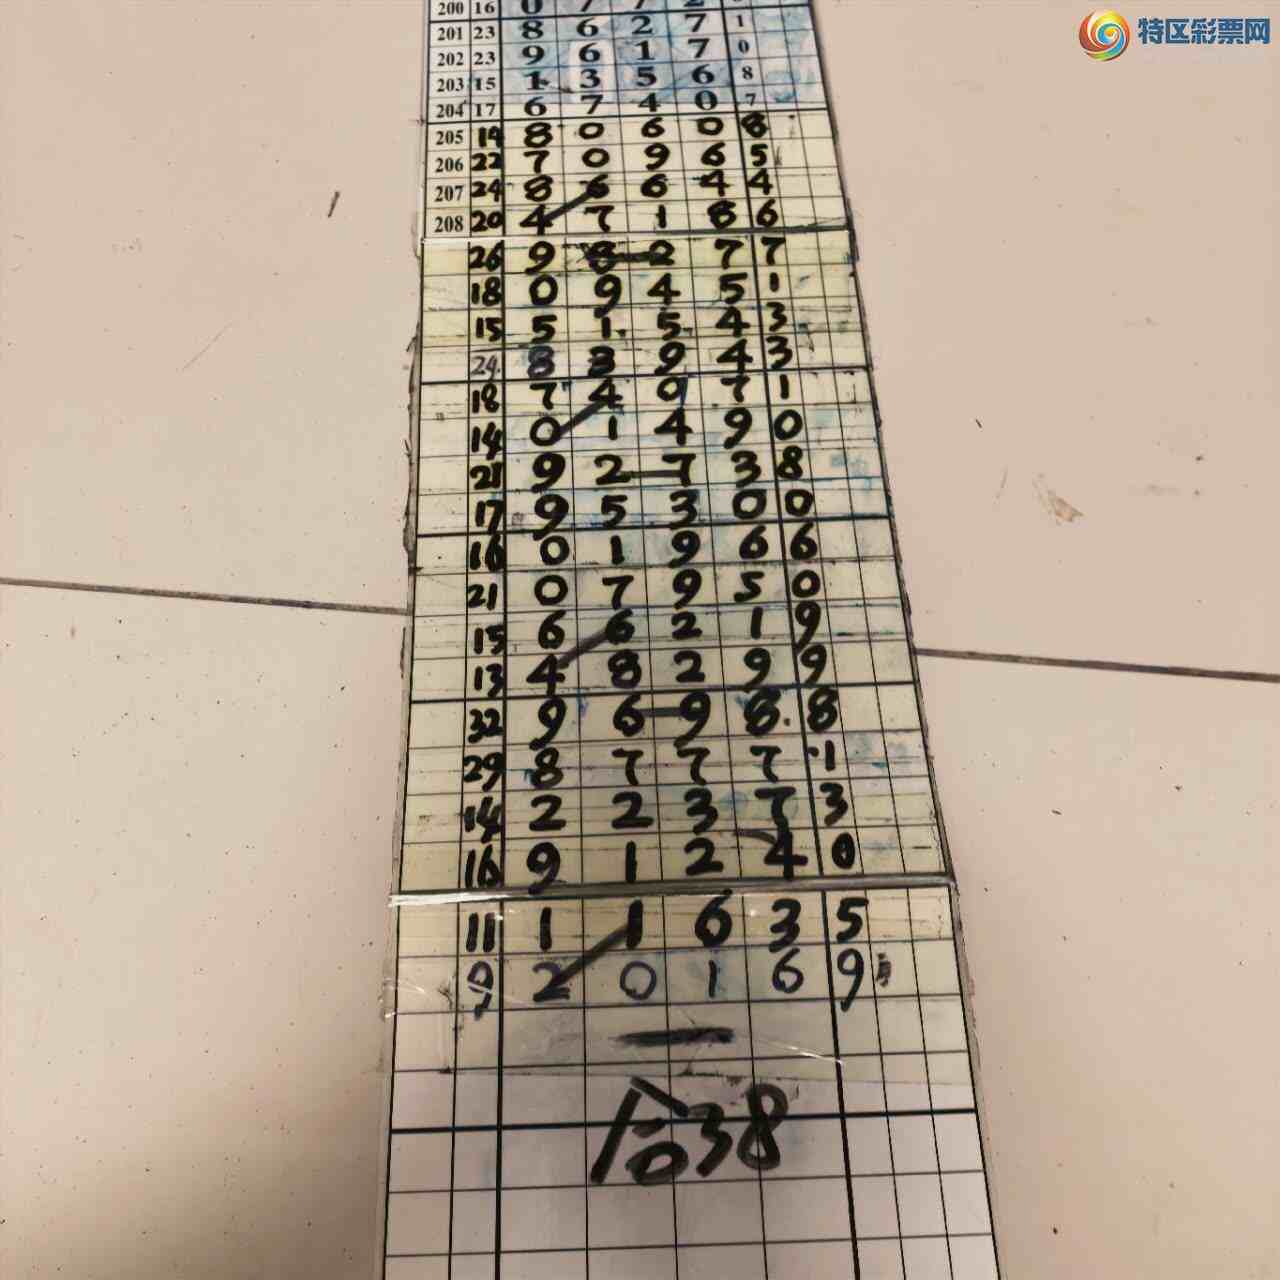 特区彩票网
200 16 0 7 7 2
201 23 8 6 2 7 1
202 23 9 6 1 7 0
203 15 1 3 5 6 8
204 17 6 7 4 0 7
205 14 8 0 6 0 8
206 22 7 0 9 6 5
207 24 8 6 6 4 4
208 20 4 7 1 8 6
26 9 8 2 7 7
18 0 9 4 5 1
15 5 1 5 4 3
24 8 3 9 4 3
18 7 4 0 7 1
14 0 1 4 9 0
21 9 2 7 3 8
17 9 5 3 0 0
16 0 1 9 6 6
21 0 7 9 5 0
15 6 6 2 1 9
13 4 8 2 9 9
32 9 6 9 8 8
29 8 7 7 7 1
14 2 2 3 7 3
16 9 1 2 4 0
11 1 1 6 3 5
9 2 0 1 6 9
合38